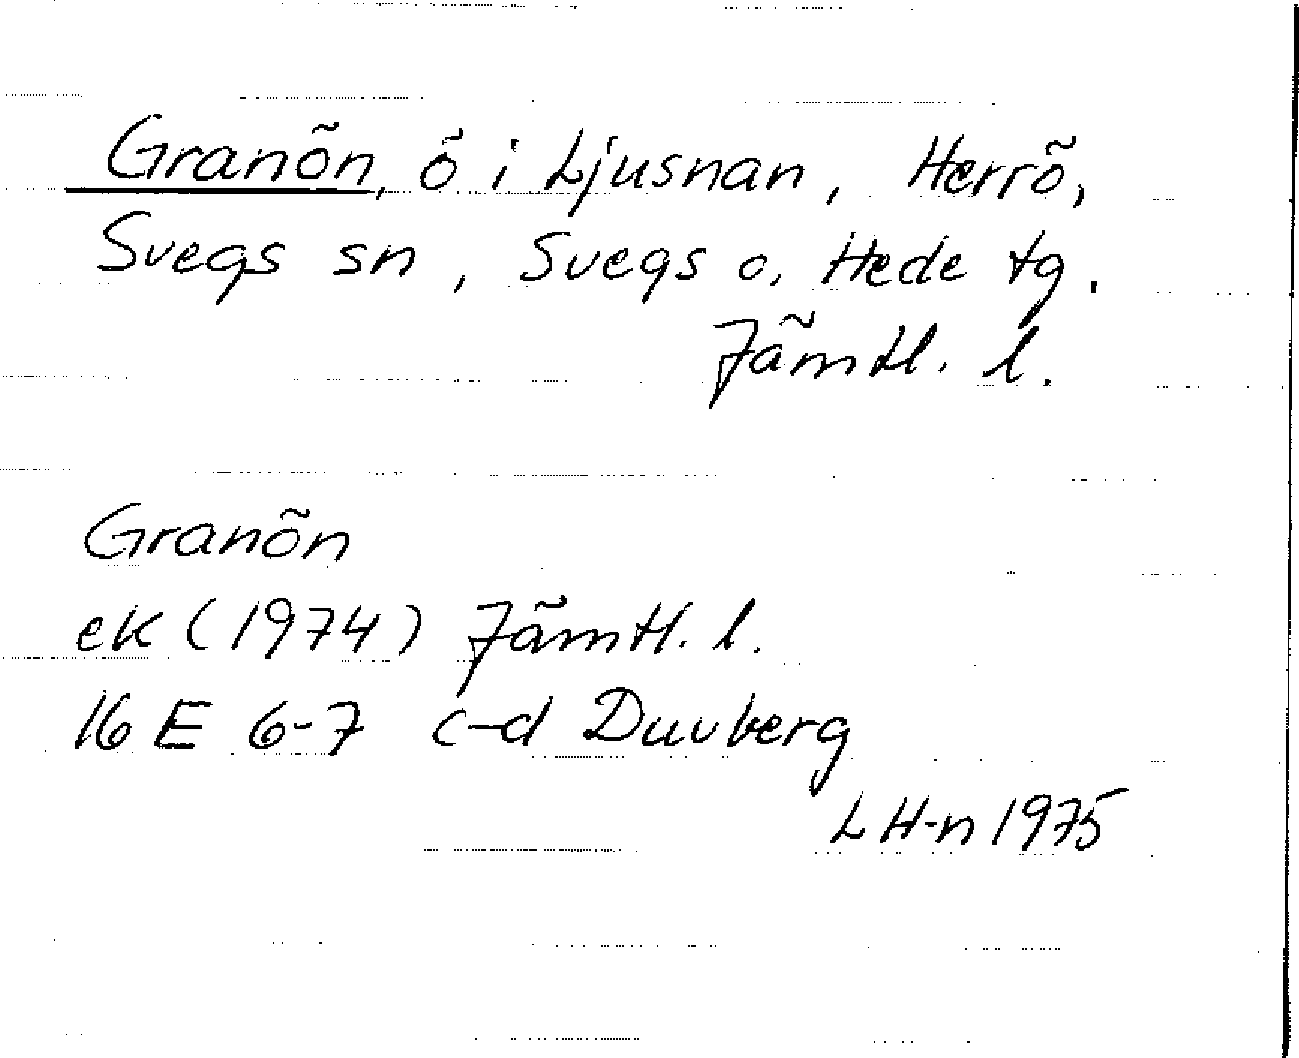 Granön, ö i Ljusnan, Herrö,
Svegs sn, Svegs o. Hede tg.
Jämtl. l.
Granön
ek (1974) Jämtl. l.
16 E 6-7 c-d Duvberg
LH-n 1975